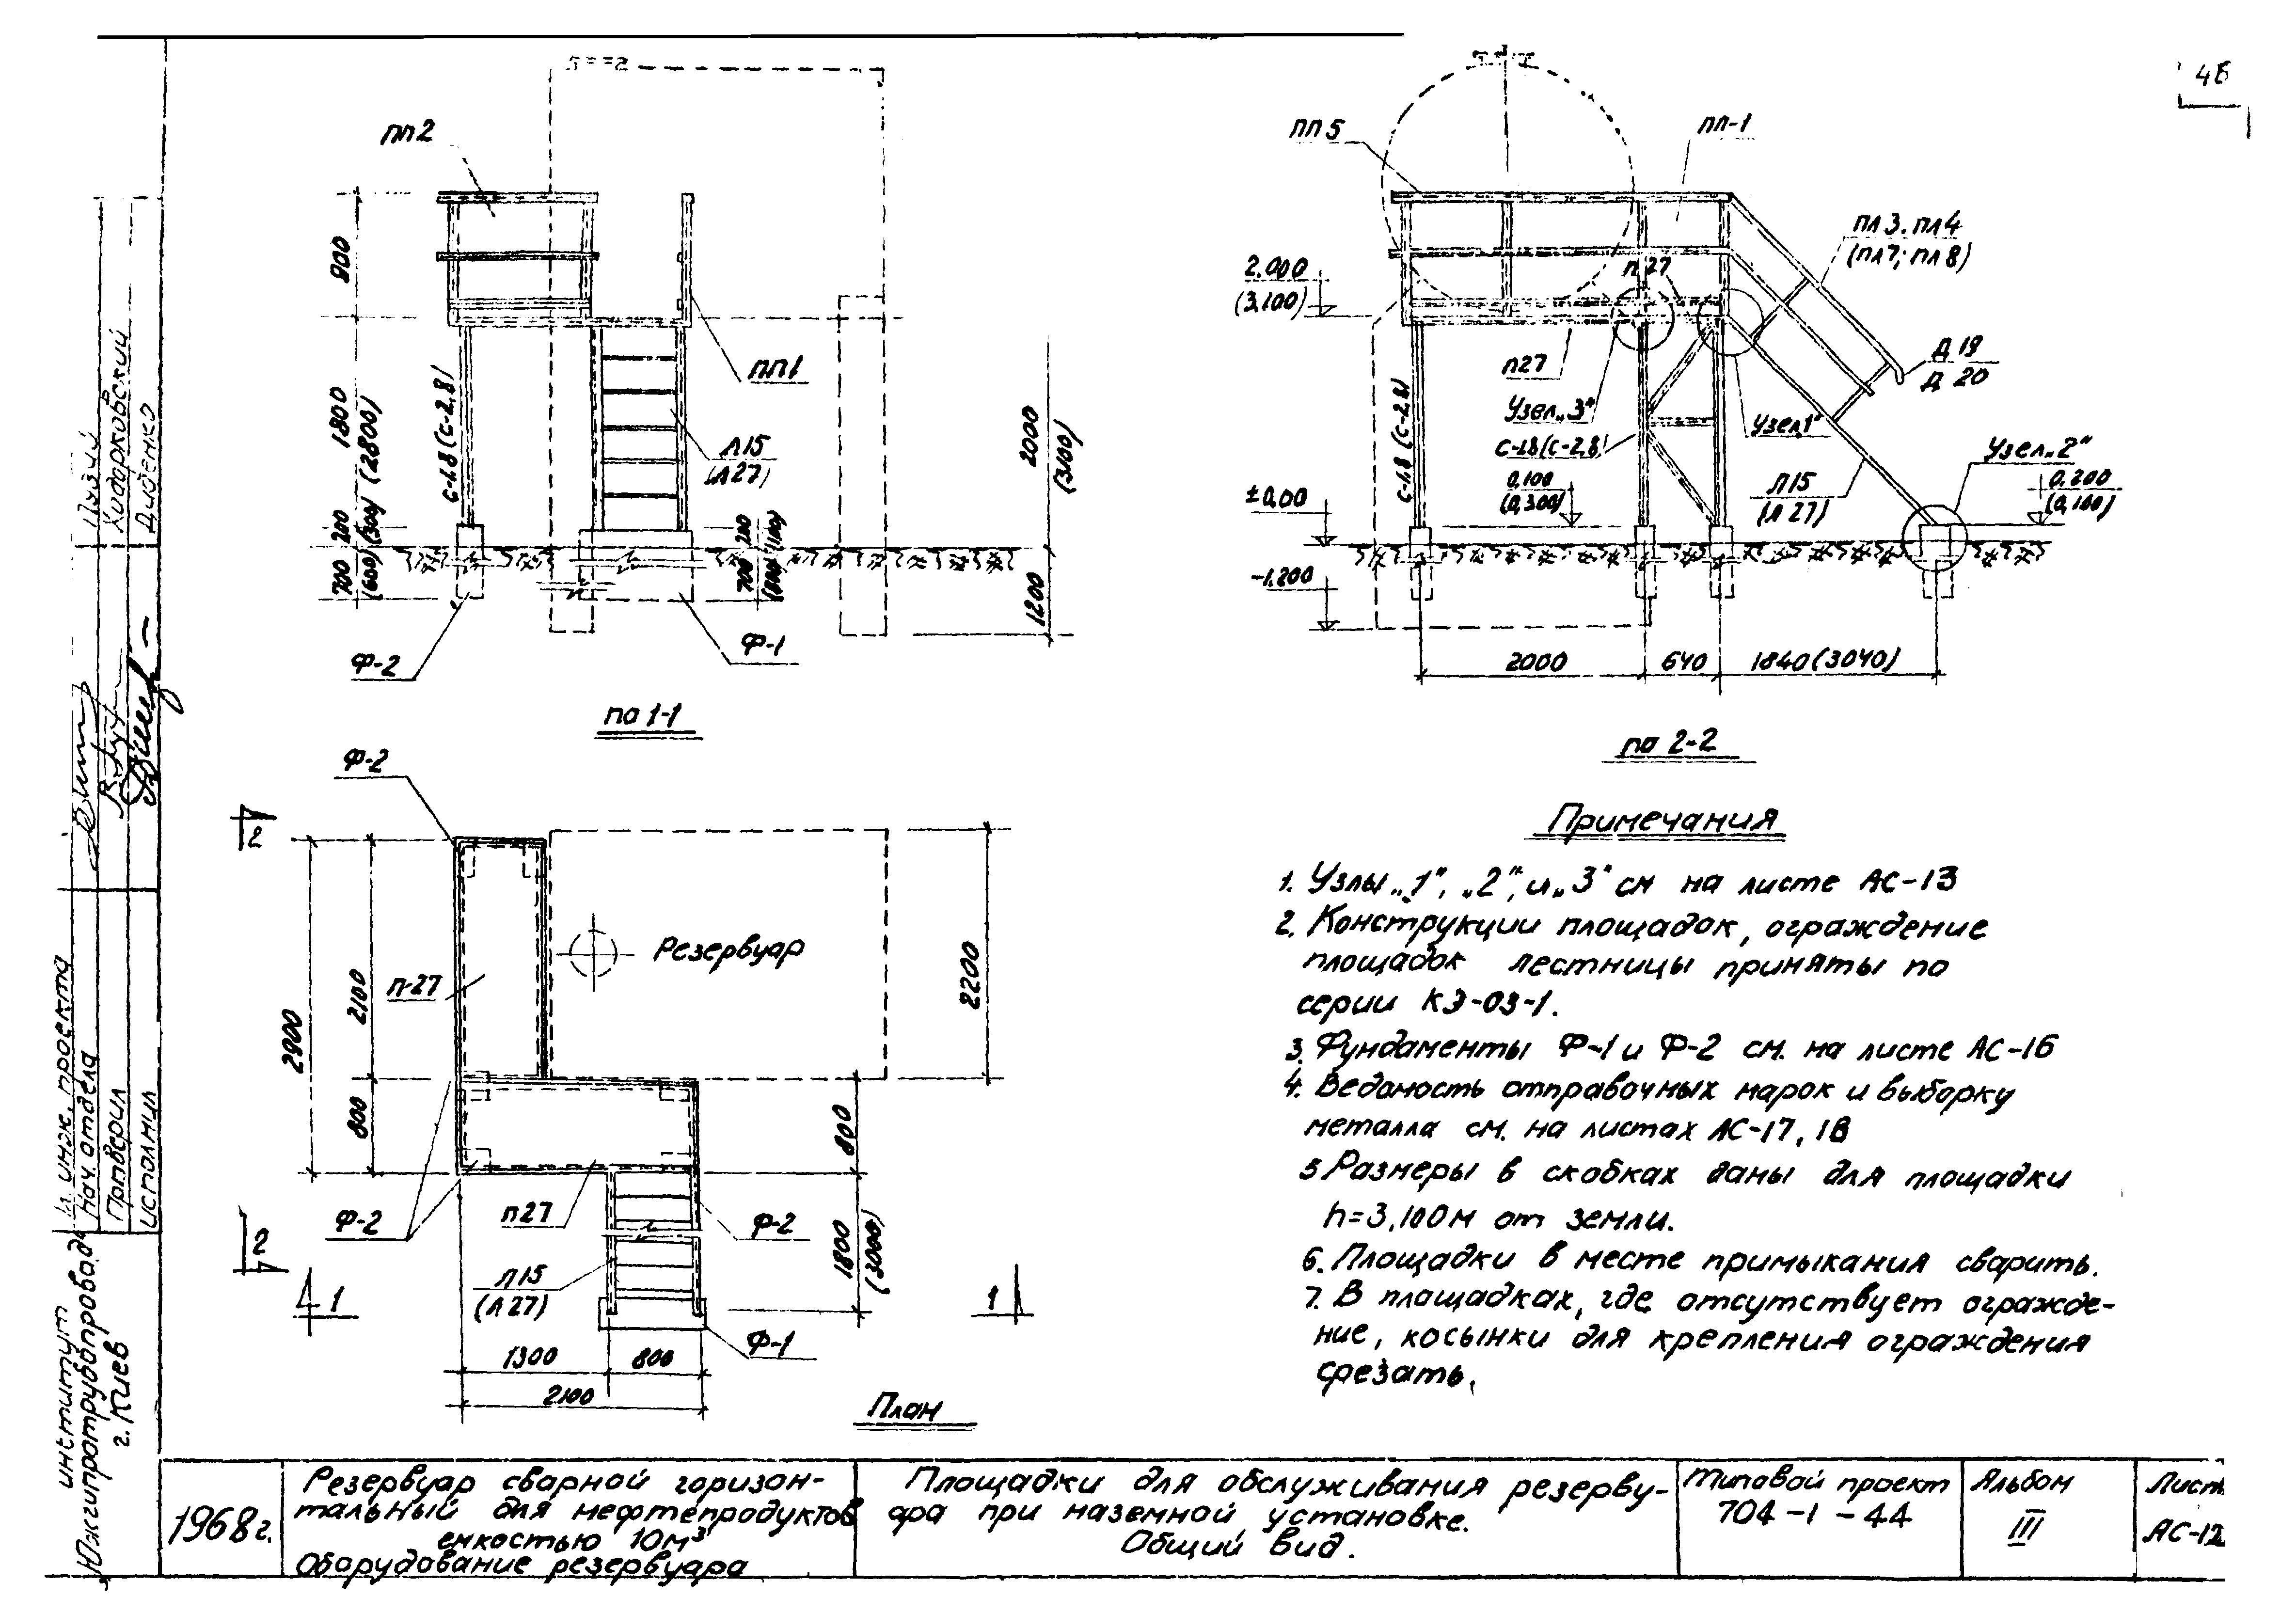 46
ПП2
800
1800
(2800)
200
(300)
700
(600)
С-1.8 (С-2,8)
ПП1
Л15
(Л27)
200
700
2000
(3100)
1200
Ф-2
Ф-1
по 1-1
ПП5
ПП-1
ПЛ3. ПЛ4
(ПЛ7; ПЛ8)
2.000
(3,100)
П27
Д 19
Д 20
П27
Узел „3"
Узел „1"
Узел „2"
С-1.8 (С-2,8)
С-1.8 (С-2,8)
0,100
(0,300)
Л15
(Л27)
0,200
(0,100)
±0,00
-1,200
2000
640
1840 (3040)
по 2-2
Ф-2
2
2900
2,100
800
П-27
Резервуар
2200
800
1800
(3000)
Ф-2
П27
Ф-2
2
1
Л15
(Л27)
1
Ф-1
1300
800
2100
План
Примечания
1. Узлы „1", „2", и „3" см на листе АС-13
2. Конструкции площадок, ограждение
площадок лестницы приняты по
серии КЭ-03-1.
3. Фундаменты Ф-1 и Ф-2 см. на листе АС-16
4. Ведомость отправочных марок и выборку
металла см. на листах АС-17, 18
5 Размеры в скобках даны для площадки
h=3,100м от земли.
6. Площадки в месте примыкания сварить.
7. В площадках, где отсутствует огражде-
ние, косынки для крепления ограждения
срезать.
Хидарковский
Диденко
Гл. инж. проекта
Нач. отдела
Проверил
исполнил
институт
Южгипротрубопровод
г. Киев
1968г.
Резервуар сварной горизон-
тальный для нефтепродуктов
емкостью 10м³
Оборудование резервуара
Площадки для обслуживания резерву-
ара при наземной установке.
Общий вид.
Типовой проект
704-1-44
Альбом
III
Лист
АС-12